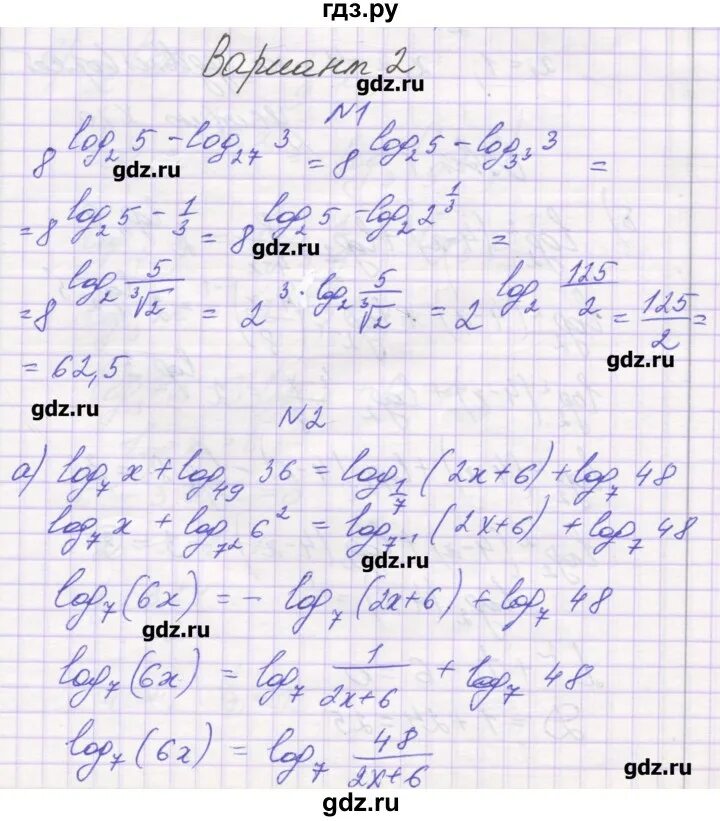 гдз.ру
Вариант 2
gdz.ru
№1
8^(log₂ 5 − log₂₇ 3) = 8^(log₂ 5 − log_(3³) 3) =
gdz.ru
= 8^(log₂ 5 − 1/3) = 8^(log₂ 5 − log₂ 2^(1/3)) =
gdz.ru
= 8^(log₂ 5/∛2) = 2^(3 · log₂ 5/∛2) = 2^(log₂ 125/2) = 125/2 =
gdz.ru
= 62,5
gdz.ru
№2
а) log₇ x + log₄₉ 36 = log_(1/7) (2x+6) + log₇ 48
log₇ x + log_(7²) 6² = log_(7⁻¹) (2x+6) + log₇ 48
gdz.ru
log₇ (6x) = − log₇ (2x+6) + log₇ 48
gdz.ru
log₇ (6x) = log₇ 1/(2x+6) + log₇ 48
log₇ (6x) = log₇ 48/(2x+6)
gdz.ru
gdz.ru